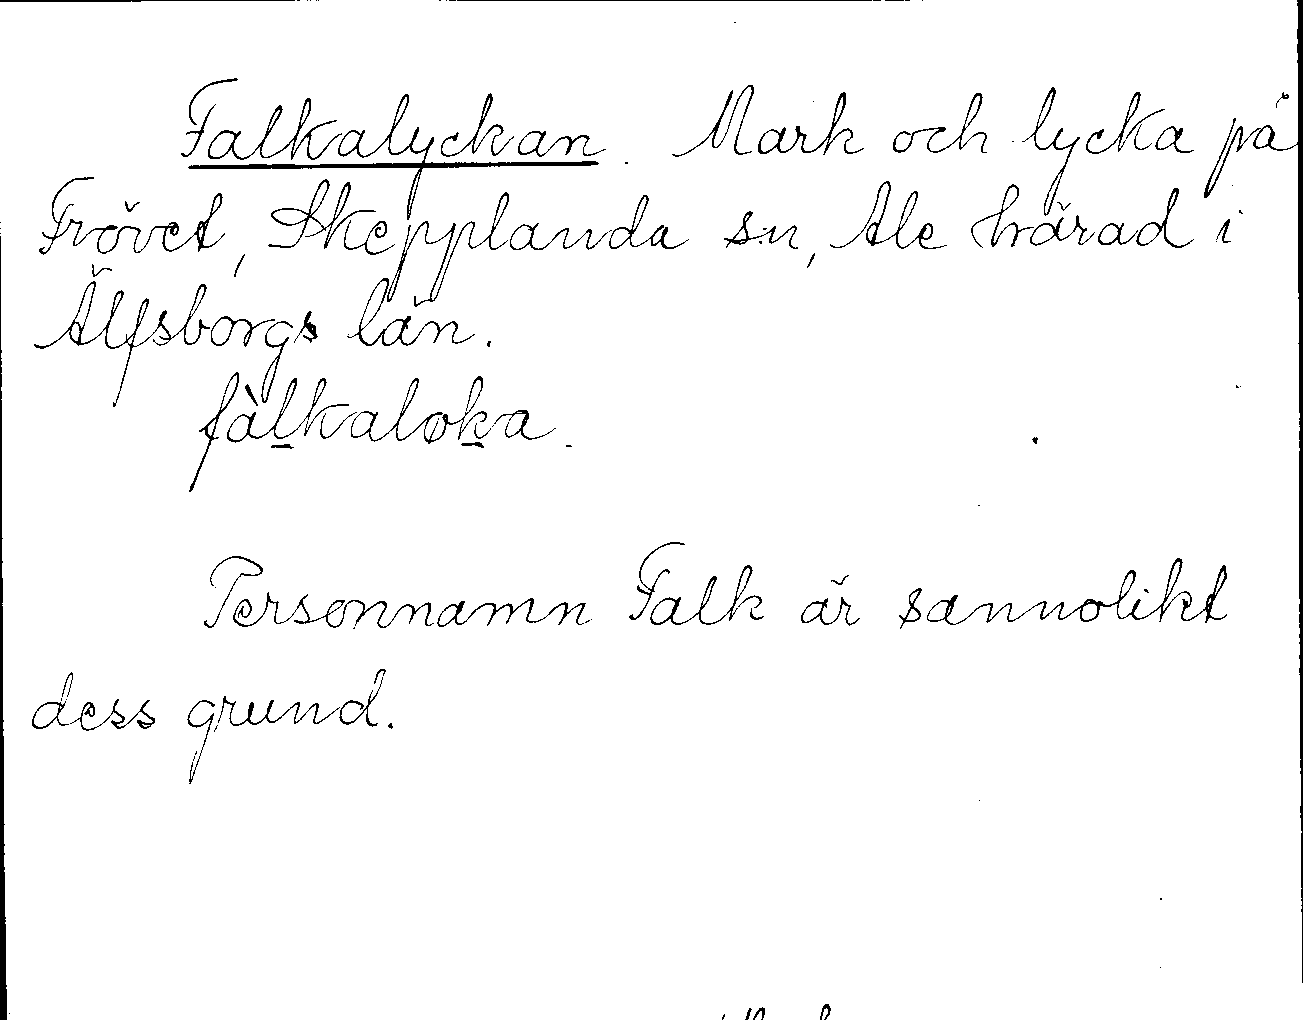 Falkalyckan. Mark och lycka på
Frövet, Skepplanda sn, Ale härad i
Älfsborgs län.
fàl̲kaløk̲a.
Personnamn Falk är sannolikt
dess grund.